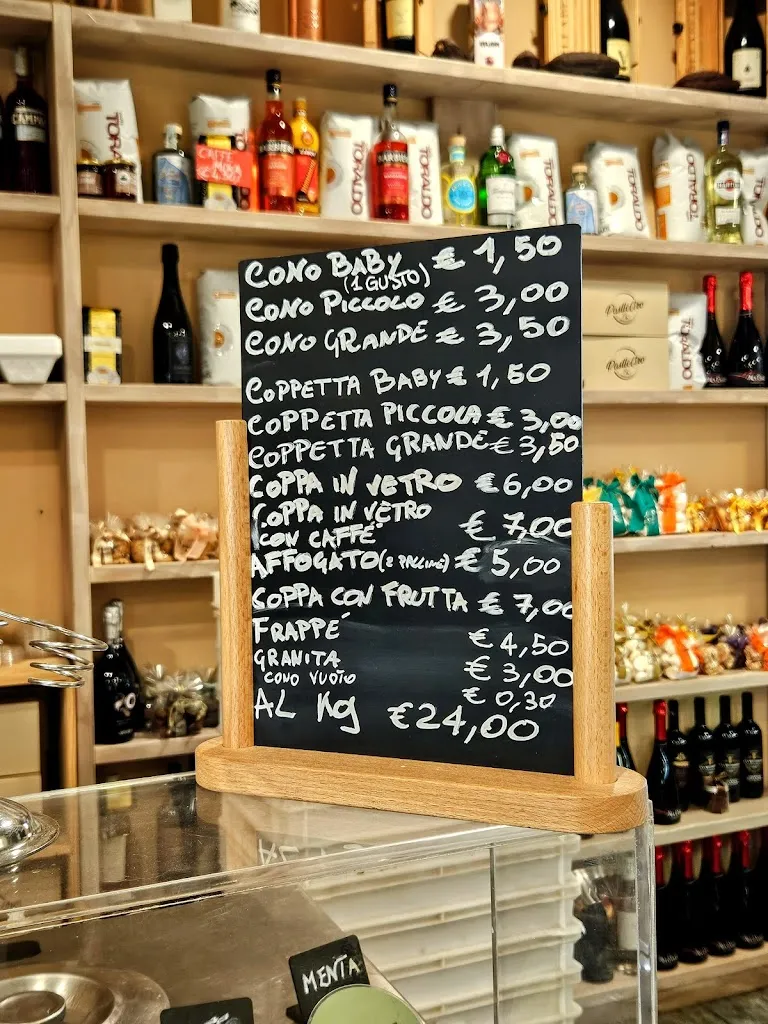 TORALDO
TORALDO
TORALDO
TORALDO
TORALDO
TORALDO
CONO BABY € 1,50
(1 GUSTO)
CONO PICCOLO € 3,00
CONO GRANDE € 3,50
COPPETTA BABY € 1,50
COPPETTA PICCOLA € 3,00
COPPETTA GRANDE € 3,50
COPPA IN VETRO € 6,00
COPPA IN VETRO
CON CAFFÈ € 7,00
AFFOGATO (2 PALLINE) € 5,00
COPPA CON FRUTTA € 7,00
FRAPPÉ € 4,50
GRANITA € 3,00
CONO VUOTO € 0,30
AL Kg €24,00
TORALDO
MENTA